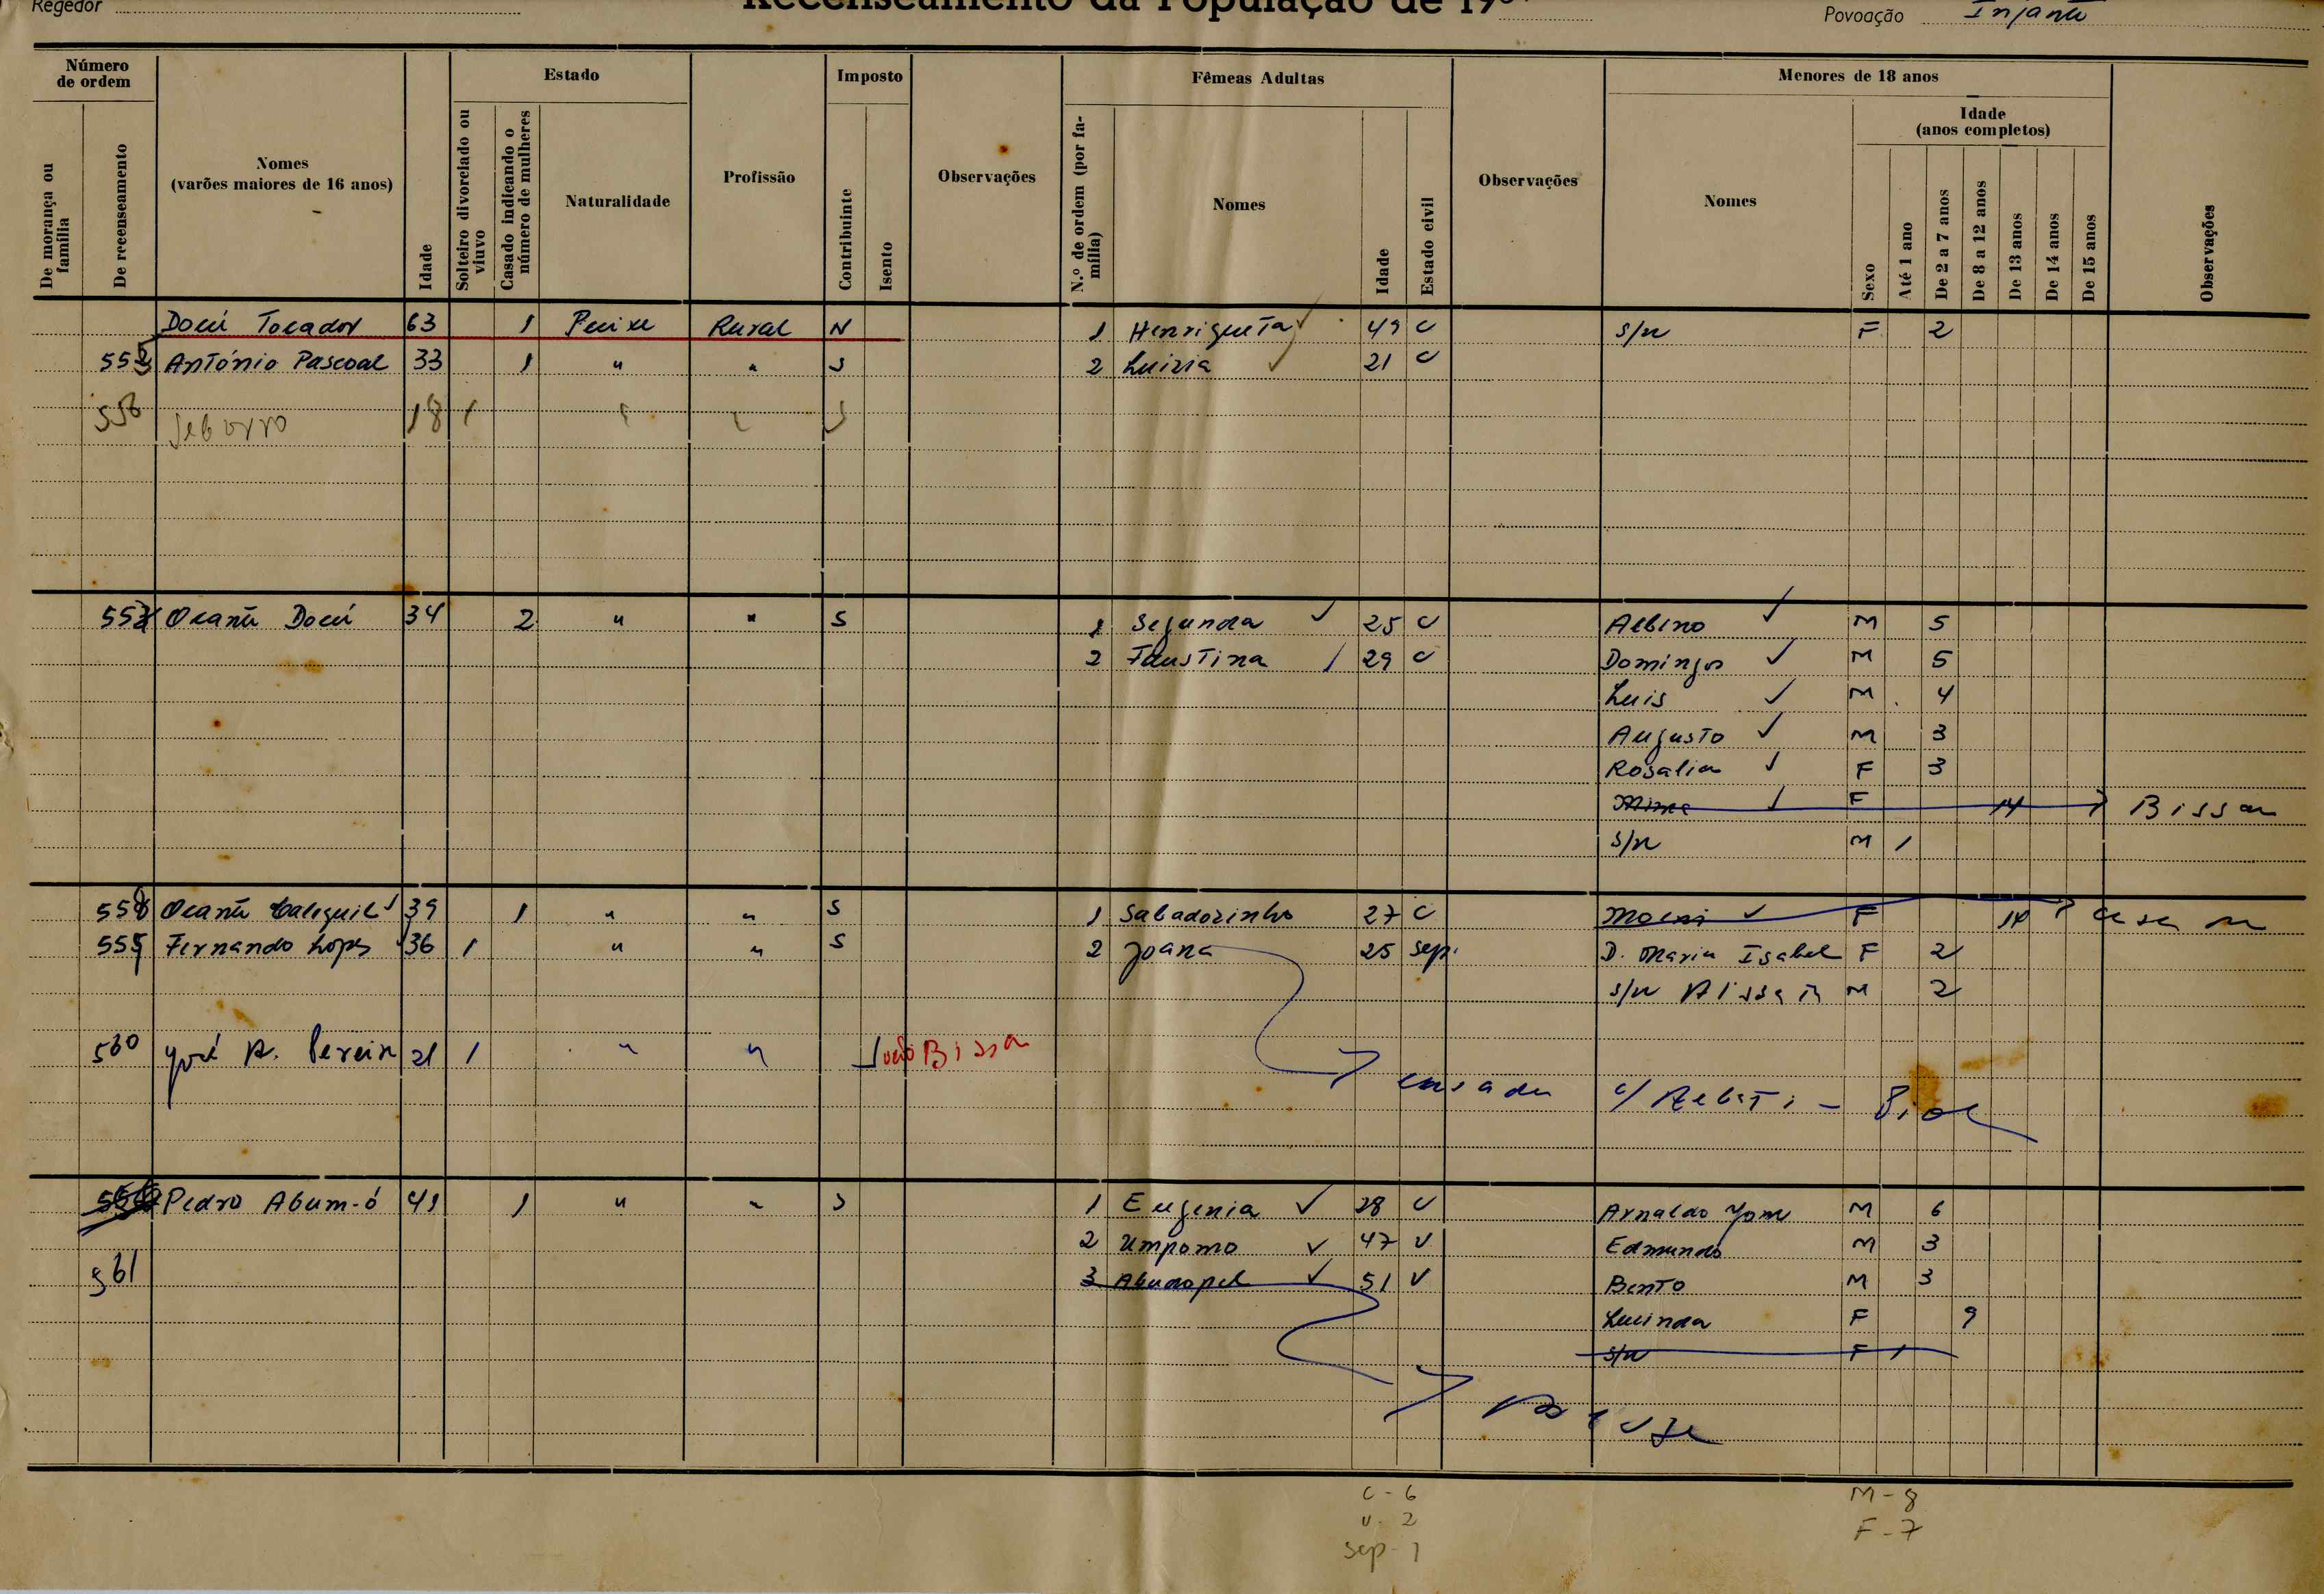 Regedor
Recenseamento da População de 19
Povoação
Número de ordem
Estado
Imposto
Fêmeas Adultas
Menores de 18 anos
De morança ou família
De recenseamento
Nomes (varões maiores de 16 anos)
Idade
Solteiro divorciado ou viuvo
Casado indicando o número de mulheres
Naturalidade
Profissão
Contribuinte
Isento
Observações
N.º de ordem (por família)
Nomes
Idade
Estado civil
Observações
Nomes
Sexo
Idade (anos completos)
Até 1 ano
De 2 a 7 anos
De 8 a 12 anos
De 13 anos
De 14 anos
De 15 anos
Observações
Docú Tocador 63 1 Peixe Rural N 1 Henriqueta 49 C s/n F 2
António Pascoal 33 1 " " S 2 Luizia 21 C
556 18 1
Ocantē Docú 34 2 " " S 1 Segunda 25 C Albino M 5
2 Faustina 29 C Domingos M 5
Luis M 4
Augusto M 3
Rosalia F 3
F 14 Bissau
s/n M 1
558 Ocantē 39 1 " " S 1 Sabadozinho 27 C F
Fernando Lopes 36 1 " " S 2 Joana 25 sep. D. Maria Isabel F 2
s/n M 2
560 José A. Pereira 21 1 " " Bissau
casada c/
Pedro Abum-ó 41 1 " " S 1 Eugenia 28 C Arnaldo M 6
2 Umpomo 47 V Edmundo M 3
561 3 51 V Bento M 3
Lucinda F 9
s/n F 1
C - 6
V - 2
sep - 1
M - 8
F - 7